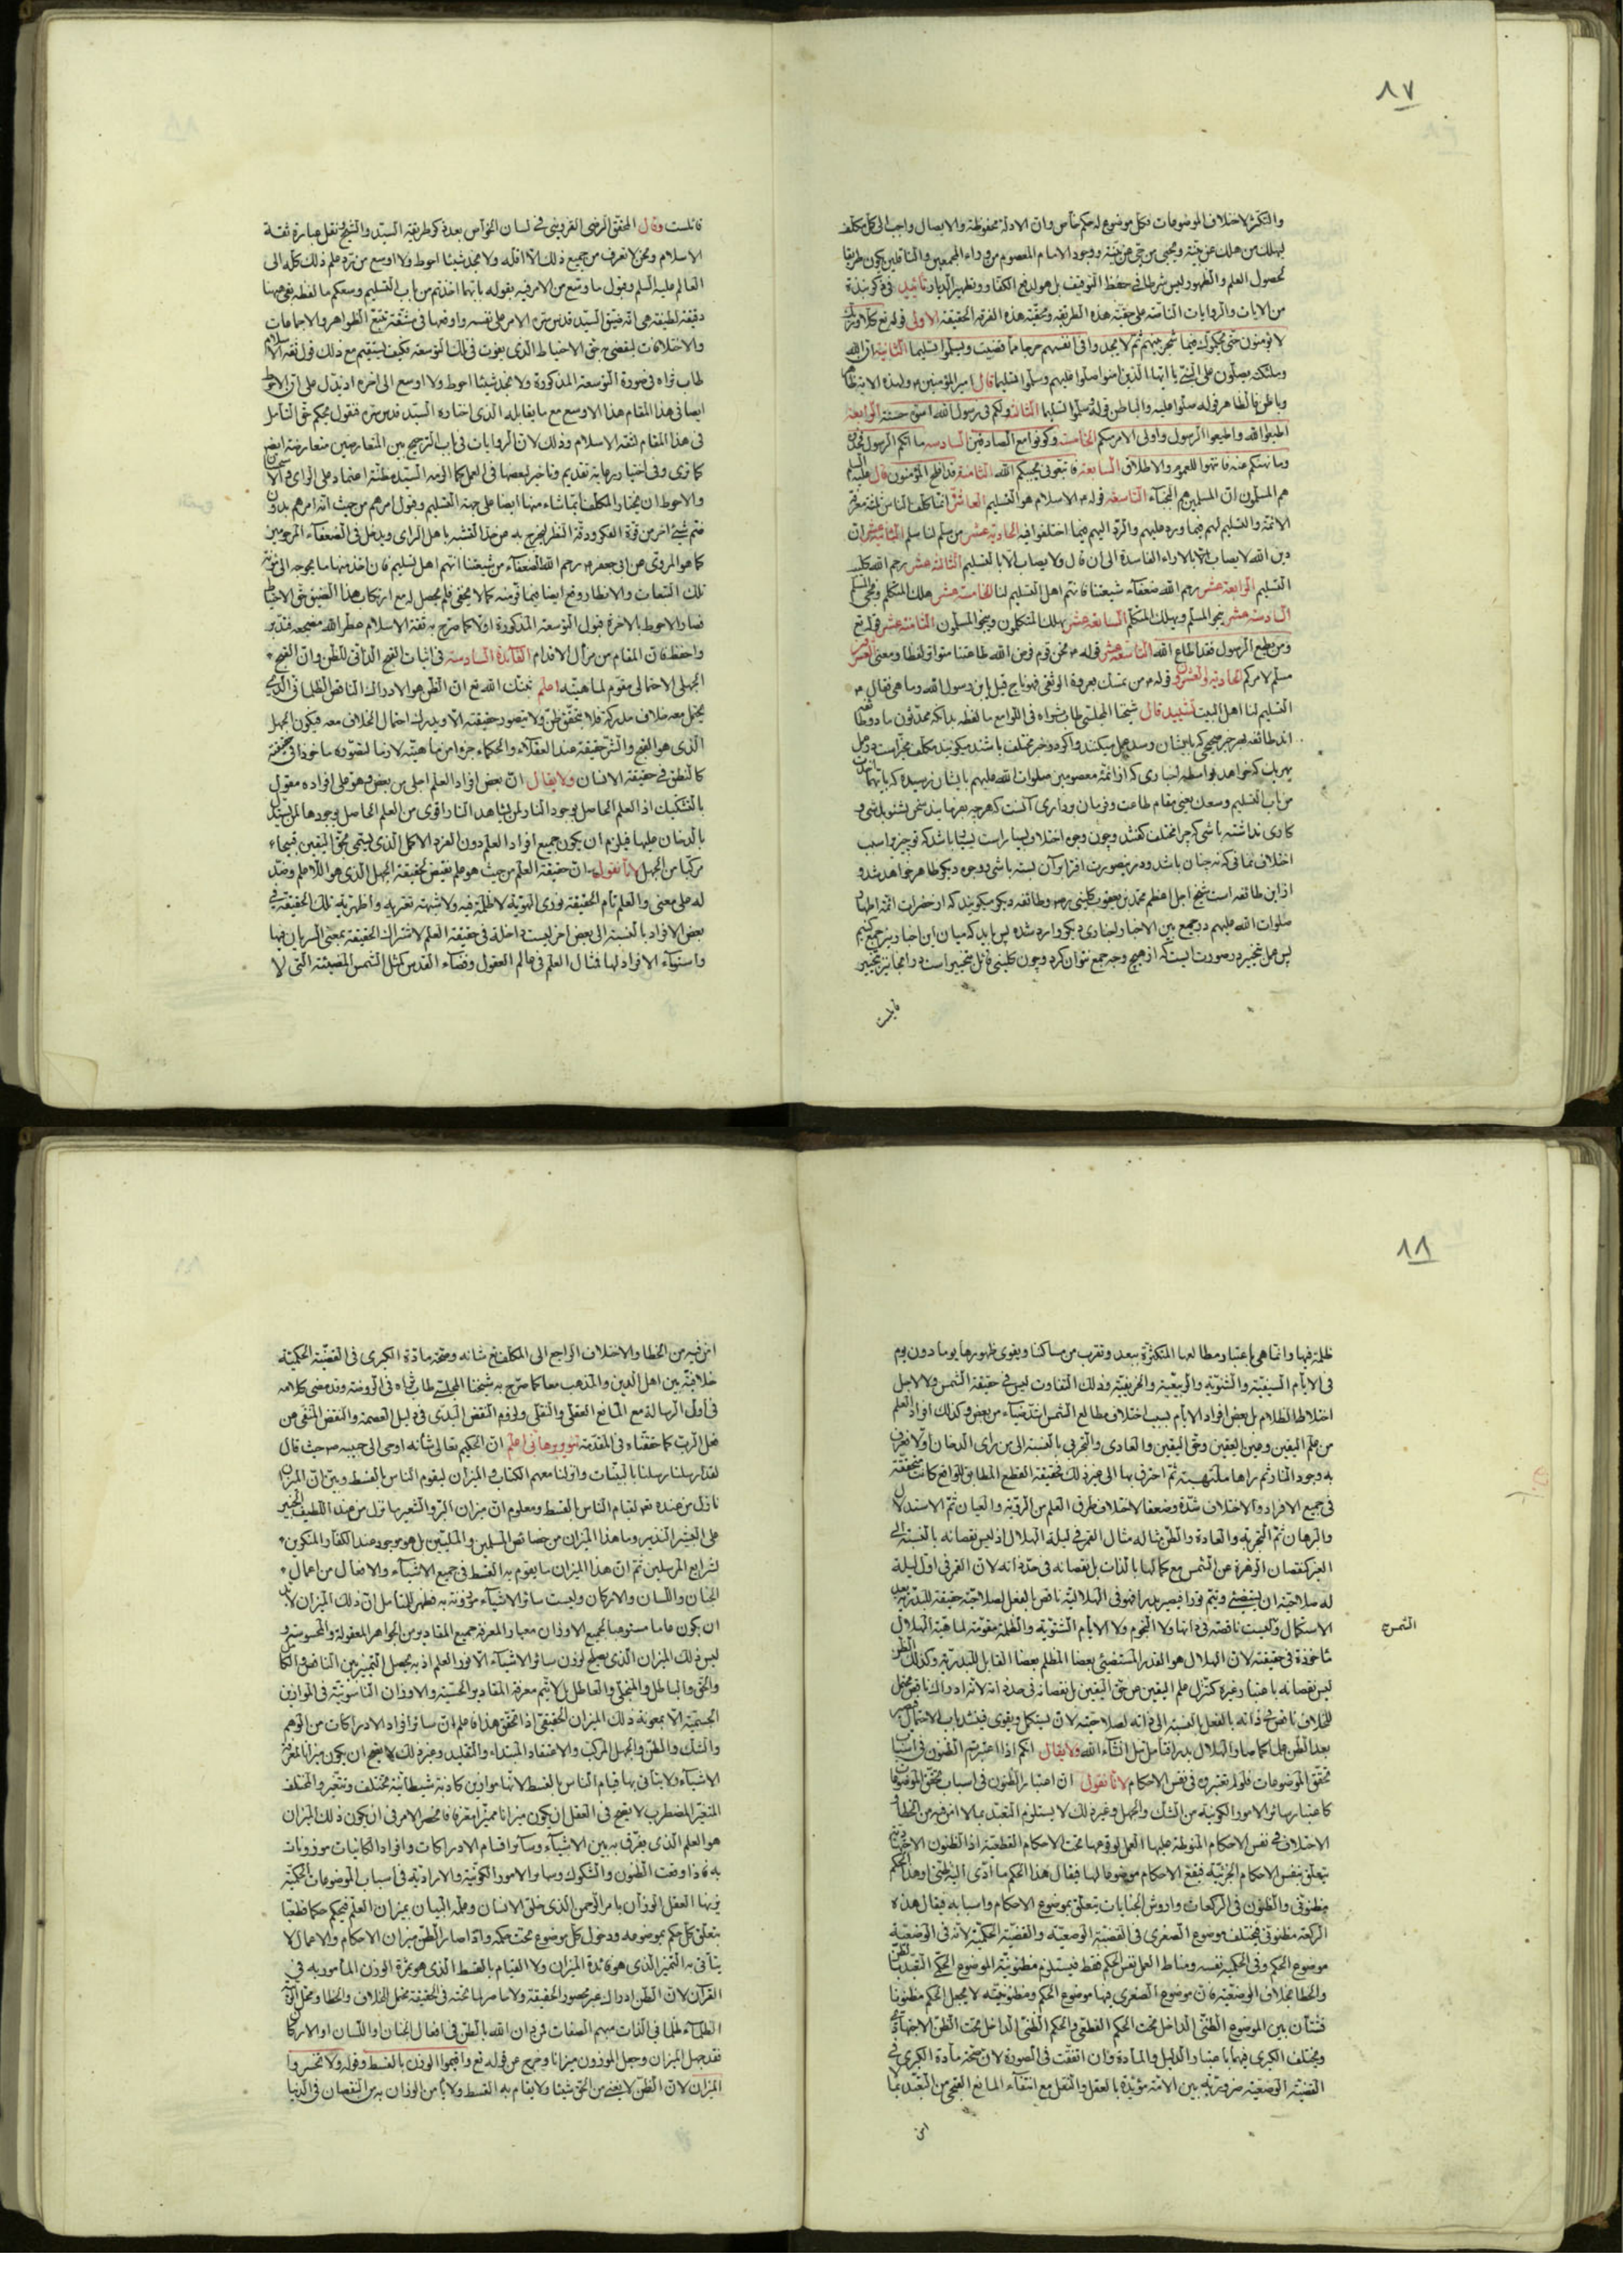 ٨٧
والتكثر لاختلاف الموضوعات فكل موضوع له حكم خاص وان الادلة محفوظة والايصال واجب الى كل مكلف
ليهلك من هلك عن بينة ويحيى من حى عن بينة ووجود الامام المعصوم من وراء المجمعين والناقلين يكون طريقا
لحصول العلم والظهور وليس شرطا فى حفظ التوقيف بل هو لدفع الكفار وتطهير الديار تأييد فى ذكر نبذة
من الايات والروايات الناصة على حقية هذه الطريقة ومحقية هذه الفرقة الحقيقة الاولى قوله تع كلا وربك
لا يؤمنون حتى يحكموك فيما شجر بينهم ثم لا يجدوا فى انفسهم حرجا مما قضيت ويسلموا تسليما الثانية ان الله
وملئكته يصلون على النبى يا ايها الذين امنوا صلوا عليه وسلموا تسليما قال امير المؤمنين ولهذه الاية ظاهر
وباطن فالظاهر قوله صلوا عليه والباطن قوله وسلموا تسليما الثالثة ولكم فى رسول الله اسوة حسنة الرابعة
اطيعوا الله واطيعوا الرسول واولى الامر منكم الخامسة وكونوا مع الصادقين السادسة ما اتيكم الرسول فخذوه
وما نهيكم عنه فانتهوا للعموم والاطلاق السابعة فاتبعونى يحببكم الله الثامنة قد افلح المؤمنون قال عليه السلم
هم المسلمون ان المسلمين هم النجباء التاسعة قوله م الاسلام هو التسليم العاشرة انما كلف الناس ثلثة معرفة
الائمة والتسليم لهم فيما ورد عليهم والرد اليهم فيما اختلفوا فيه الحادية عشر من سلم لنا سلم الثانية عشر ان
دين الله لا يصاب بالاراء الفاسدة الى ان قال ولا يصاب الا بالتسليم الثالثة عشر رحم الله
التسليم الرابعة عشر رحم الله ضعفاء شيعتنا فانهم اهل التسليم لنا الخامسة عشر هلك المتكلم ونجى المسلم
السادسة عشر ينجو المسلم ويهلك المتكلم السابعة عشر يهلك المتكلمون وينجو المسلمون الثامنة عشر قوله تع
ومن يطع الرسول فقد اطاع الله التاسعة عشر قوله م نحن قوم فرض الله طاعتنا متواتر لفظا ومعنى العشرون
مسلم لامركم الحادية والعشرون قوله م من تمسك بعروة الوثقى فهو ناج قيل يابن رسول الله وما هى فقال م
التسليم لنا اهل البيت تشييد قال شيخنا المجلسى طاب ثراه فى اللوامع ما لفظه بدانكه محدثون ما دو طا
اند طائفه بهر خبر صحيحى كه بايشان رسد عمل ميكنند واكر دو خبر مختلف باشند ميكويند مكلف مخير است در عمل
بهريك كه خواهد بواسطه اخبارى كه از ائمه معصومين صلوات الله عليهم بايشان رسيده كه بايهما اخذت
من باب التسليم وسعك يعنى مقام طاعت وفرمان بردارى آنست كه هر چه بفرمايند سخن بشنو بلسى و
كارى نداشته باشى كه چرا مختلف كفتند وچون وجوه اختلاف بسيار است بسا باشد كه تو چيزى را سبب
اختلاف نمافى كه نه چنان باشد ودر بصورت افترا بر آن بسته باشى ووجوه ديكر ظاهر خواهد شد و
از اين طائفه است شيخ اجل اعظم محمد بن يعقوب كلينى ره وطائفه ديكر ميكويند كه از حضرات ائمه اطهار
صلوات الله عليهم در جمع بين الاخبار اخبارى ديكر وارد شده پس بايد كه ميان اين اخبار نيز جمع كنيم
پس عمل بتخيير در صورت ايست كه از هيچ وجه جمع نتوان كرد وچون كلينى قائل بتخيير است در انجا نيز بتخيير
قائلست
قائلست وقال المحقق الرضى القزوينى فى لسان الخواص بعد ذكر طريقة السيد والشيخ نقل عبارة ثقة
الاسلام ونحن لا نعرف من جميع ذلك الا اقله ولا نجد شيئا احوط ولا اوسع من رد علم ذلك كله الى
العالم عليه السلم وقبول ما وسع من الامر فيه بقوله بايهما اخذتم من باب التسليم وسعكم ما لفظه بقى هيهنا
دقيقة لطيفة هى انه ضيق السيد قدس سره الامر على نفسه واوقعها فى مشقة تتبع الظواهر والاجماعات
والاختلافات ليقضى حق الاحتياط الذى يفوت فى تلك التوسعة فكيف يستقيم مع ذلك قول ثقة الاسلام
طاب ثراه فى ضرورة التوسعة المذكورة ولا نجد شيئا احوط ولا اوسع الى اخره اذ يدل على ان الاحوط
ايضا فى هذا المقام هذا الاوسع مع ما يقابله الذى اختاره السيد قدس سره فنقول يحكم حق التأمل
فى هذا المقام لثقة الاسلام وذلك لان الروايات فى باب الترجيح بين المتعارضين متعارضة ايضا
كما ترى وفى اختيار رعاية تقديم وتاخير بعضها فى العمل كما الزمه السيد مظنة اعتماد على الراى والاستحسان
والاحوط ان يختار المكلف بما شاء منها ايضا على جهة التسليم وقبول امرهم من حيث انه امرهم بدون
ضم شئ اخر من قوة الفكر ودقة النظر ليخرج به من حد التشبه باهل الراى ويدخل فى الضعفاء المرحومين
كما هو المروى عن ابى جعفر م رحم الله الضعفاء من شيعتنا انهم اهل تسليم فان اخذ منها ما يوجه الى مؤنة
تلك التبعات والانظار وقع ايضا فيما فر منه كما لا يخفى فلم يحصل له مع ارتكاب هذا الضيق حق الاحتياط
فصار الاحوط بالاخرة قبول التوسعة المذكورة اولا كما صرح به ثقة الاسلام عطر الله مضجعه فتدبر
واحفظ فان المقام من مزال الاقدام الفائدة السادسة فى اثبات القبح الذاتى للظن وان القبح
الجهلى الاحتمالى مقوم لماهيته اعلم ثبتك الله تع ان الظن هو الادراك الناقص الظلمانى الذى
يحتمل معه خلاف مدركه فلا يتحقق ظن ولا يتصور حقيقته الا ويدرك احتمال الخلاف معه فيكون الجهل
الذى هو القبح والشر حقيقة عند العقلاء والحكماء جزءا من ماهيته لازما لتصوره ماخوذا فى حقيقته
كالنطق فى حقيقة الانسان ولا يقال ان بعض افراد العلم اجلى من بعض فهو على افراده مقول
بالتشكيك اذ العلم الحاصل بوجود النار لمن يشاهد النار اقوى من العلم الحاصل بوجودها لمن يستدل
بالدخان عليها فيلزم ان يكون جميع افراد العلم دون الفرد الاكمل الذى يسمى بحق اليقين قبيحا
مركبا من الجهل لانا نقول ان حقيقة العلم من حيث هو علم نقيض لحقيقة الجهل الذى هو اللاعلم وضد
له على معنى والعلم تام الحقيقة نورى الهوية لا ظلمة فيه ولا شبهة تعتريه واظهرية تلك الحقيقة فى
بعض الافراد بالنسبة الى بعض اخر ليست داخلة فى حقيقة العلم لاشتراك الحقيقة بمعنى السريان فيها
واستواء الافراد لها فمثال العلم فى عالم العقول وفضاء القدس كمثل الشمس المضيئة التى لا
٨٨
ظلمة فيها وانما هى باعتبار مطالعها المتكثرة يبعد وتقرب من مساكننا ويقوى ظهورها يوما دون يوم
فى الايام الصيفية والشتوية والربيعية والخريفية وذلك التفاوت ليس فى حقيقة الشمس ولا لاجل
اختلاطها الظلام بل بعض افراد الايام بسبب اختلاف مطالع الشمس اشد ضياء من بعض وكذلك افراد العلم
من علم اليقين وعين اليقين وحق اليقين والعادى والتجربى بالنسبة الى من راى الدخان اولا فعرف
به وجود النار ثم راها ملتهبة ثم احترق بها الى غير ذلك فحقيقة القطع المطابق للواقع كانت متحققة
فى جميع الافراد والاختلاف شدة وضعفا لاختلاف طرق العلم من الرؤية والعيان ثم الاستدلال
والبرهان ثم التجربة والعادة والظن مثاله مثال القمر فى ليلة الهلال اذ ليس نقصانه بالنسبة الى
الغير كنقصان الزهرة عن الشمس مع كمالها بالذات بل نقصانه فى حد ذاته لان القمر فى اول ليلة
له صلاحية ان يستضئ ويتم نورا فيصير بدرا فهو فى الهلالية ناقص بالفعل لصلاحيته حقيقة للبدرية بعد
الاستكمال وليست ناقصة فى ذاتها ولا النجوم ولا الايام الشتوية والظلمة مقومة لماهية الهلال
الشمس
مأخوذة فى حقيقته لان الهلال هو القدر المستضئ بعضا المظلم بعضا القابل للبدرية وكذلك الظن
ليس نقصانه باعتبار غيره كتنزل علم اليقين عن حق اليقين بل نقصانه فى حد ذاته لانه ادراك ناقص محتمل
للخلاف ناقص فى ذاته بالفعل بالنسبة الى ذاته لصلاحيته لان يستكمل ويقوى فينسد باب الاحتمال فيصير
بعد الظن علما كما صار الهلال بدرا فتأمل ان شاء الله ولا يقال انكم اذا اعتبرتم الظنون فى اسباب
تحقق الموضوعات فلم لا تعتبرون فى نفس الاحكام لانا نقول ان اعتبار الظنون فى اسباب تحقق الموضوعات
كاعتبار سائر الامور الكونية من الشك والجهل وغير ذلك لا يستلزم التعبد بما لا امن فيه من الخطاء و
الاختلاف فى نفس الاحكام المنوطة عليها العمل لوقوعها تحت الاحكام القطعية اذ الظنون الاجتهادية
يتعلق بنفس الاحكام الجزئية فيقع الاحكام موضوعا لها فيقال هذا الحكم ما ادى اليه ظنى وهذا الحكم
مظنونى والظنون فى الركعات واروش الجنايات يتعلق بموضوع الاحكام واسبابه فيقال هذه
الركعة مظنونى فيختلف موضوع الصغرى فى القضية الوضعية والقضية الحكمية لانه فى الوضعية
موضوع الحكم وفى الحكمية نفسه ومناط العمل نفس الحكم فقط فيستلزم مظنونية الموضوع الحكمى التعبد بالظن
والخطا بخلاف الوضعية فان موضوع الصغرى فيها موضوع الحكم ومظنونيته لا يجعل الحكم مظنونا
فشتان بين الموضوع الظنى الداخل تحت الحكم القطعى والحكم الظنى الداخل تحت الظن الاجتهادى
ويختلف الكبرى فيهما باعتبار الدليل والمادة وان اتفقت فى الصورة لان صحة مادة الكبرى فى
القضية الوضعية ضرورية بين الامة مؤيدة بالعقل والنقل مع انتفاء المانع القبحى من التعبد بما
امن
امن فيه من الخطا والاختلاف الراجع الى المكلف مع شانه وصحة مادة الكبرى فى القضية الحكمية
خلافية بين اهل الدين والمذهب معا كما صرح به شيخنا المجلسى طاب ثراه فى الروضة وقد مضى كلامه
فى اول الرسالة مع المانع العقلى والنقلى ولزوم النقض البدى فى دليل العصمة والنقض المنفى عن
فعل الرب كما حققناه فى المقدمة تنوير برهانى اعلم ان الحكيم تعالى شأنه اوحى الى حبيبه ص حيث قال
لقد ارسلنا رسلنا بالبينات وانزلنا معهم الكتاب والميزان ليقوم الناس بالقسط وبين ان الميزان
نازل من عنده تعم لقيام الناس بالقسط ومعلوم ان ميزان البر والشعير ما نزل من عند اللطيف الخبير
على البشير النذير وما هذا الميزان من خصائص المسلمين والمليين بل هو موجود عند الكفار والمنكرين
لشرايع المرسلين ثم ان هذا الميزان ما يقوم به القسط فى جميع الاشياء والافعال من اعمال
الجنان واللسان والاركان وليست سائر الاشياء موزونة به فظهر للمتأمل ان ذلك الميزان لابد
ان يكون عاما مستوعبا لجميع الاوزان معيارا لمعرفة جميع المقادير من الجواهر المعقولة والمحسوسة و
ليس ذلك الميزان الذى يصلح لوزن سائر الاشياء الا نور العلم اذ به يحصل التمييز بين الناقص والكامل
والحق والباطل والمتحلى والعاطل بل لا يتم معرفة المقادير الحسية والاوزان الناسوتية فى الموازين
الجسمية الا بمعونة ذلك الميزان الحقيقى اذا تحقق هذا فاعلم ان سائر افراد الادراكات من الوهم
والشك والظن والجهل المركب والاعتقاد المبتداء والتقليد وغير ذلك لا يصح ان يكون ميزانا لمعرفة
الاشياء ولا يتأتى بها قيام الناس بالقسط لانها موازين كاذبة شيطانية مختلف وتتغير والمختلف
المتغير المضطرب لا يصح فى العقل ان يكون ميزانا مميزا مفرقا فانحصر الامر فى ان يكون ذلك الميزان
هو العلم الذى يفرق به بين الاشياء وسائر اقسام الادراكات وافراد الكائنات موزونات
به فاذا وقعت الظنون والشكوك وسائر الامور الكونية والارادية فى اسباب الموضوعات الحكمية
يزنها العقل الوزان بامر الرحمن الذى خلق الانسان وعلمه البيان بميزان العلم فيحكم حكما قطعيا
يتعلق كل حكم بموضوعه ودخول كل موضوع تحت حكمه واذا صار الظن ميزان الاحكام والاعمال لا
يتأتى به التميز الذى هو فائدة الميزان ولا القيام بالقسط الذى هو ثمرة الوزن المأمور به فى
القرآن لان الظن ادراك غير محصور الحقيقة ولا حاصر لما تحته فى الحقيقة محتمل الخلاف والخطا ومحتمل
الظلماء ظلمانى الذات مبهم الصفات فمن دان الله بالظن فى افعال الجنان او اللسان او الاركان
فقد جهل الميزان وجعل الموزون ميزانا وخرج عن قوله تع واقيموا الوزن بالقسط وقوله ولا تخسروا
الميزان لان الظن لا يغنى من الحق شيئا ولا يقام به القسط ولا يأمن الوزان به من النقصان فى الدنيا